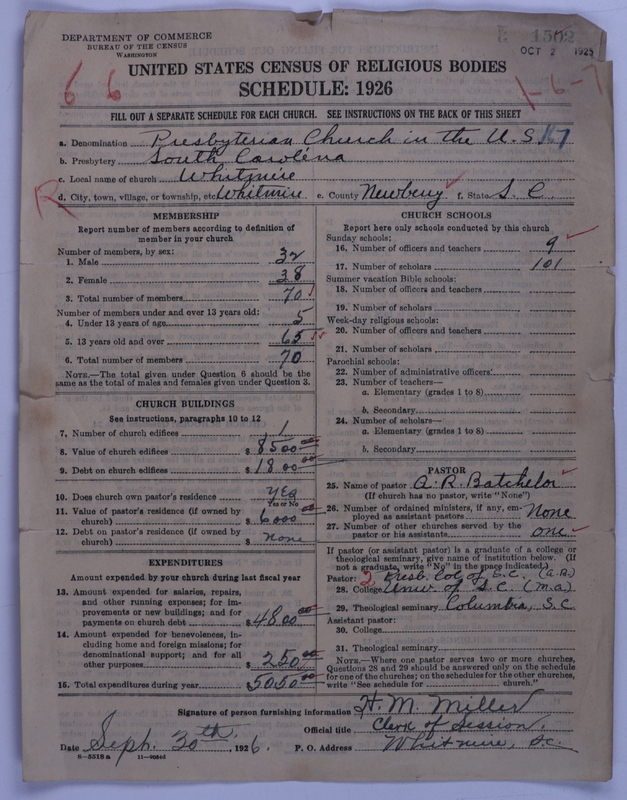 DEPARTMENT OF COMMERCE
BUREAU OF THE CENSUS
WASHINGTON
OCT 2 1926
UNITED STATES CENSUS OF RELIGIOUS BODIES
SCHEDULE: 1926
6 6
1-6-7
FILL OUT A SEPARATE SCHEDULE FOR EACH CHURCH. SEE INSTRUCTIONS ON THE BACK OF THIS SHEET
a. Denomination Presbyterian Church in the U.S. 167
b. Presbytery South Carolina
c. Local name of church Whitmire
R
d. City, town, village, or township, etc. Whitmire e. County Newberry f. State S. C.
MEMBERSHIP
Report number of members according to definition of
member in your church
Number of members, by sex:
1. Male 32
2. Female 38
3. Total number of members 70
Number of members under and over 13 years old:
4. Under 13 years of age 5
5. 13 years old and over 65
6. Total number of members 70
NOTE.—The total given under Question 6 should be the
same as the total of males and females given under Question 3.
CHURCH BUILDINGS
See instructions, paragraphs 10 to 12
7. Number of church edifices 1
8. Value of church edifices $ 8500 00
9. Debt on church edifices $ 1800 00
10. Does church own pastor's residence yes
Yes or No
11. Value of pastor's residence (if owned by
church) $ 6000 00
12. Debt on pastor's residence (if owned by
church) $ none
EXPENDITURES
Amount expended by your church during last fiscal year
13. Amount expended for salaries, repairs,
and other running expenses; for im-
provements or new buildings; and for
payments on church debt $ 4800 00
14. Amount expended for benevolences, in-
cluding home and foreign missions; for
denominational support; and for all
other purposes $ 250 00
15. Total expenditures during year $ 5050 00
CHURCH SCHOOLS
Report here only schools conducted by this church
Sunday schools:
16. Number of officers and teachers 9
17. Number of scholars 101
Summer vacation Bible schools:
18. Number of officers and teachers
19. Number of scholars
Week-day religious schools:
20. Number of officers and teachers
21. Number of scholars
Parochial schools:
22. Number of administrative officers
23. Number of teachers—
a. Elementary (grades 1 to 8)
b. Secondary
24. Number of scholars—
a. Elementary (grades 1 to 8)
b. Secondary
PASTOR
25. Name of pastor A. R. Batchelor
(If church has no pastor, write "None")
26. Number of ordained ministers, if any, em-
ployed as assistant pastors None
27. Number of other churches served by the
pastor or his assistants one
If pastor (or assistant pastor) is a graduate of a college or
theological seminary, give name of institution below. (If
not a graduate, write "No" in the space indicated.)
Pastor: 2 Presb. Col. of S.C. (A.B.)
28. College Univ. of S.C. (M.A.)
29. Theological seminary Columbia, S.C
Assistant pastor:
30. College
31. Theological seminary
NOTE.—Where one pastor serves two or more churches,
Questions 28 and 29 should be answered only on the schedule
for one of the churches; on the schedules for the other churches,
write "See schedule for church."
Signature of person furnishing information H. M. Miller
Official title Clerk of Session.
Date Seph. 30th. 1926. P. O. Address Whitmire, S.C.
8-5518 a